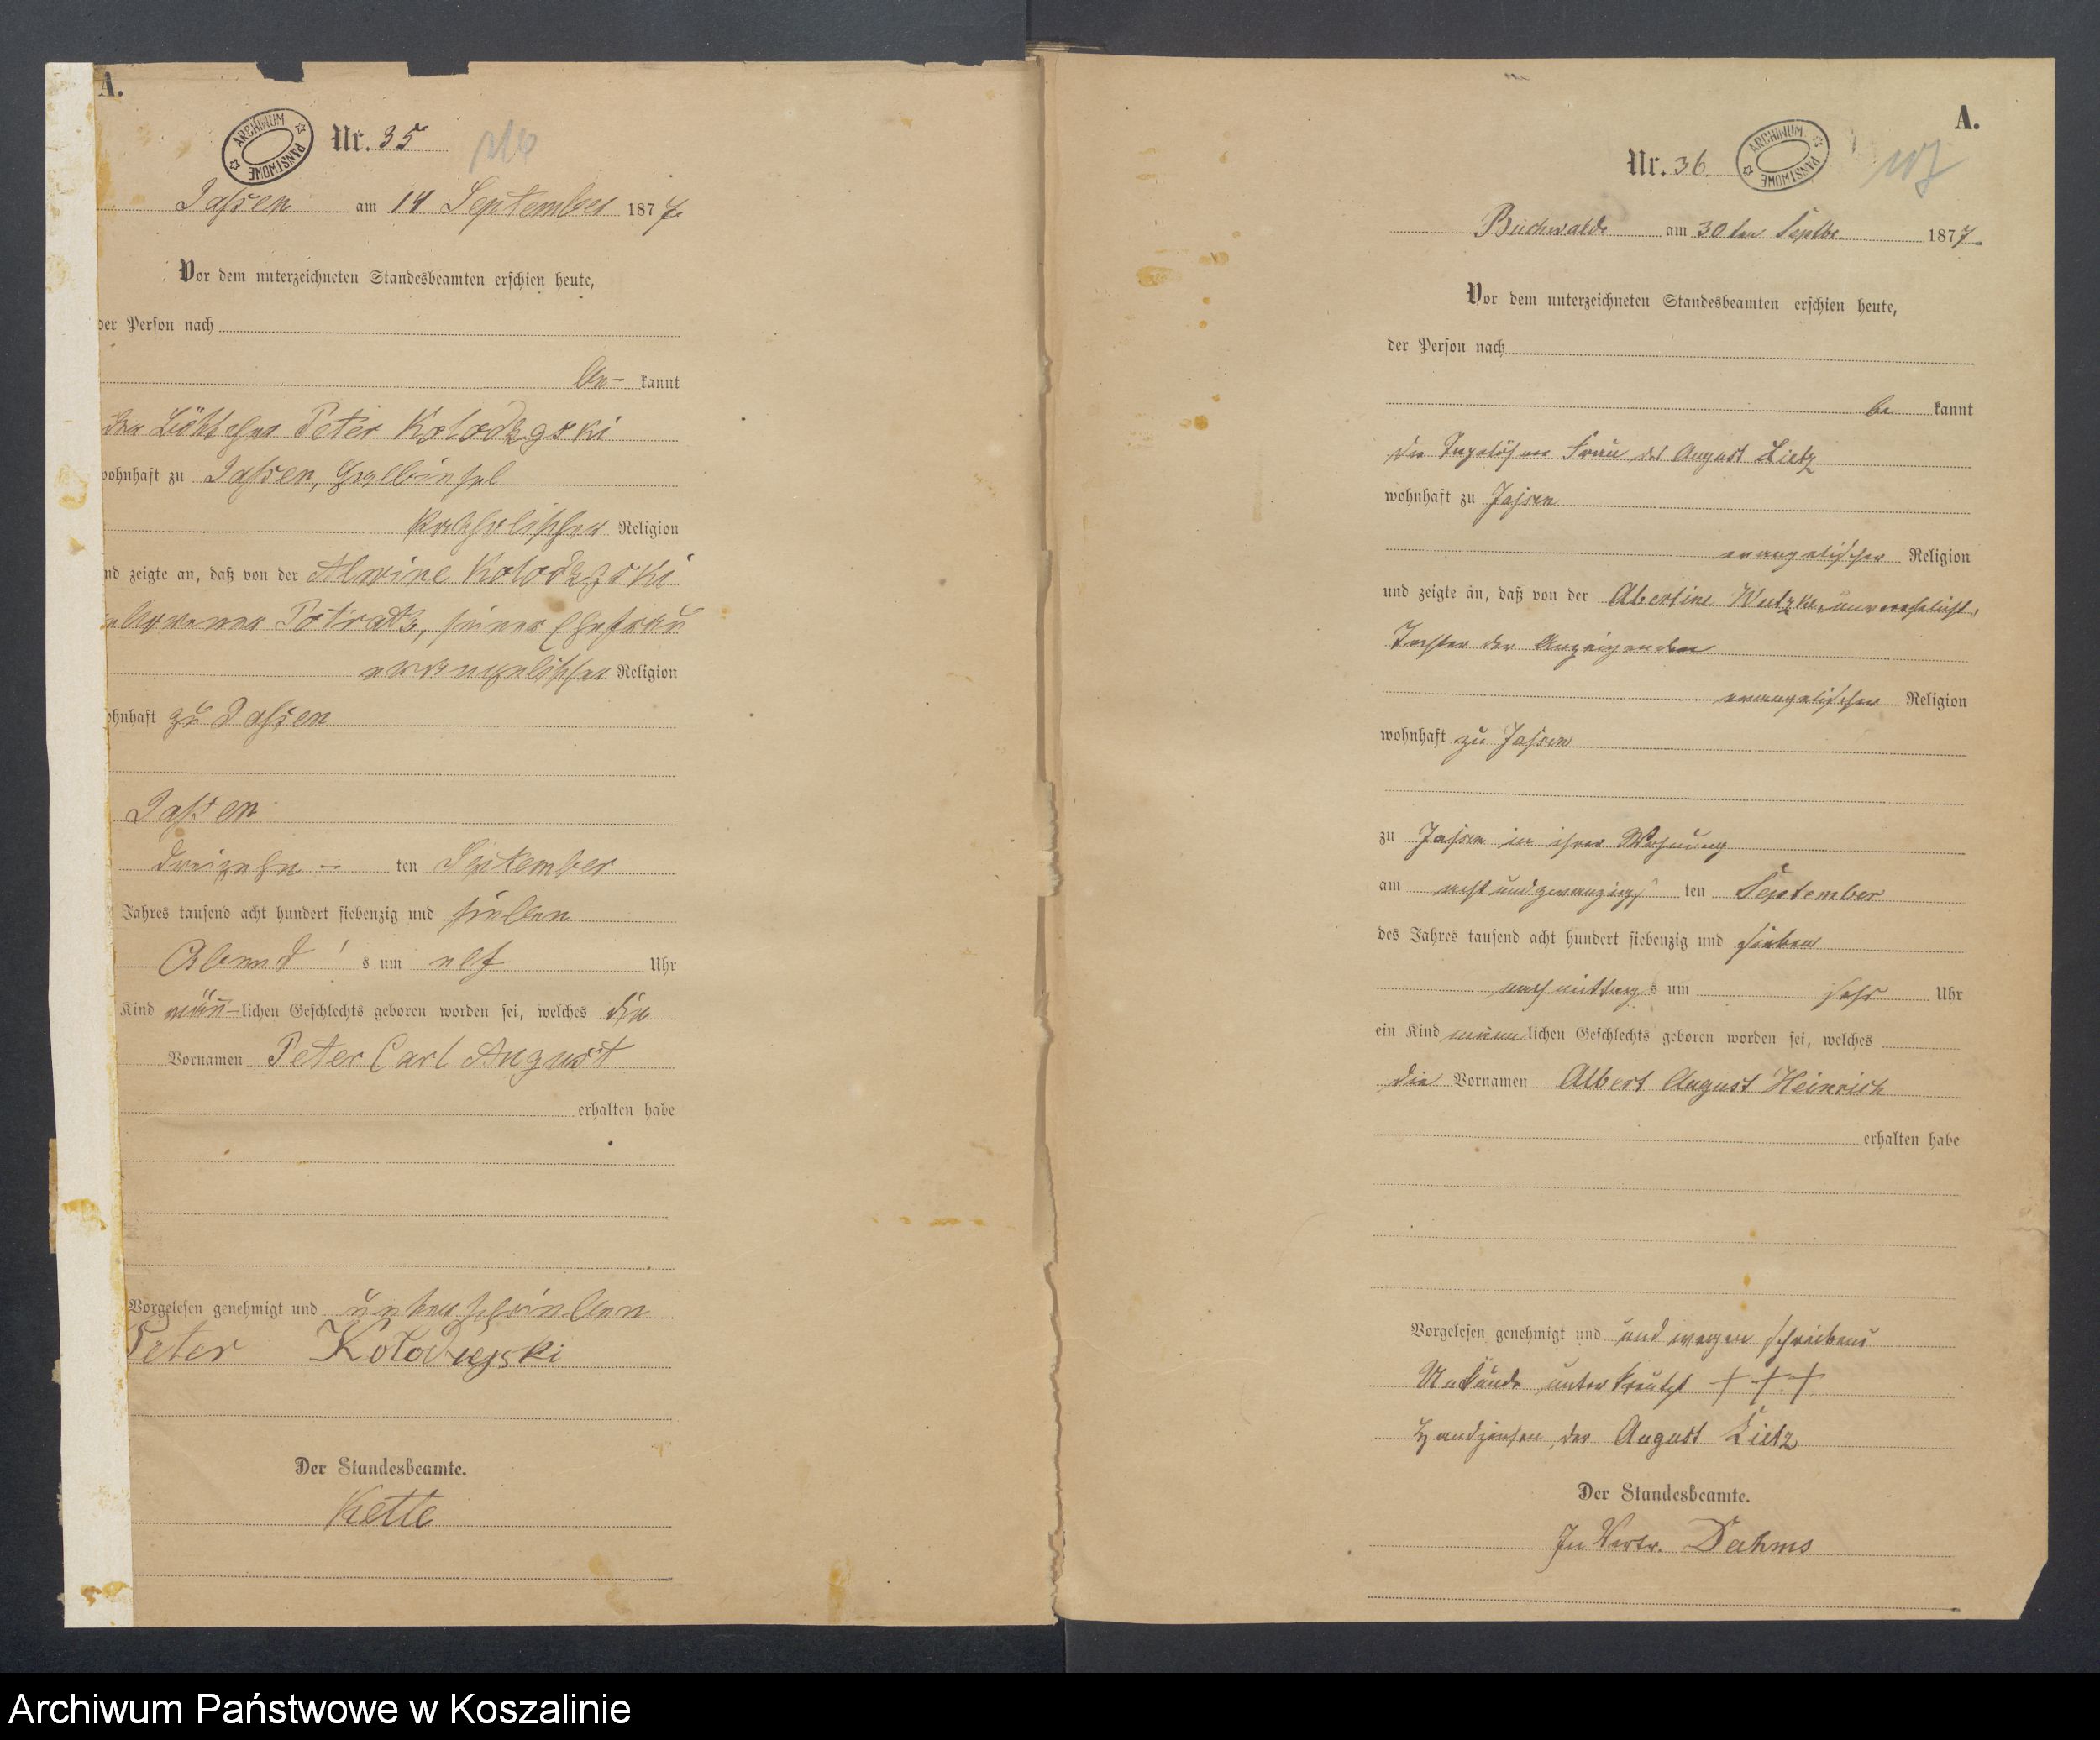 A.
ARCHIWUM PAŃSTWOWE
Nr. 35
Jassen am 14 September 1877
Vor dem unterzeichneten Standesbeamten erschien heute,
der Person nach
be- kannt
der Peter Kolodzyski
wohnhaft zu Jassen,
katholischer Religion
nd zeigte an, daß von der Alwine Kolodzyski
Potratz, seiner Ehefrau
evangelischer Religion
ohnhaft zu Jassen
Jassen
dreizehn - ten September
Jahres tausend acht hundert siebenzig und sieben
Abend s um elf Uhr
Kind männ-lichen Geschlechts geboren worden sei, welches die
Vornamen Peter Carl August
erhalten habe
Vorgelesen genehmigt und unterschrieben
Peter Kolodzejski
Der Standesbeamte.
Kette
A.
Nr. 36
ARCHIWUM PAŃSTWOWE
107
Buchwalde am 30 ten Septbr. 1877.
Vor dem unterzeichneten Standesbeamten erschien heute,
der Person nach
be kannt
die Frau des August Lietz
wohnhaft zu Jassen
evangelischer Religion
und zeigte an, daß von der Abertine Wetzke, unverehelicht,
Tochter der Anzeigenden
evangelischer Religion
wohnhaft zu Jassen
zu Jassen in ihrer Wohnung
am acht und zwanzigs ten September
des Jahres tausend acht hundert siebenzig und sieben
nachmittag s um Uhr
ein Kind männlichen Geschlechts geboren worden sei, welches
die Vornamen Albert August Heinrich
erhalten habe
Vorgelesen genehmigt und und wegen schreibens
Unkunde unterkreutzt + + +
Handzeichen der August Lietz
Der Standesbeamte.
In Vertr. Dahms
Archiwum Państwowe w Koszalinie